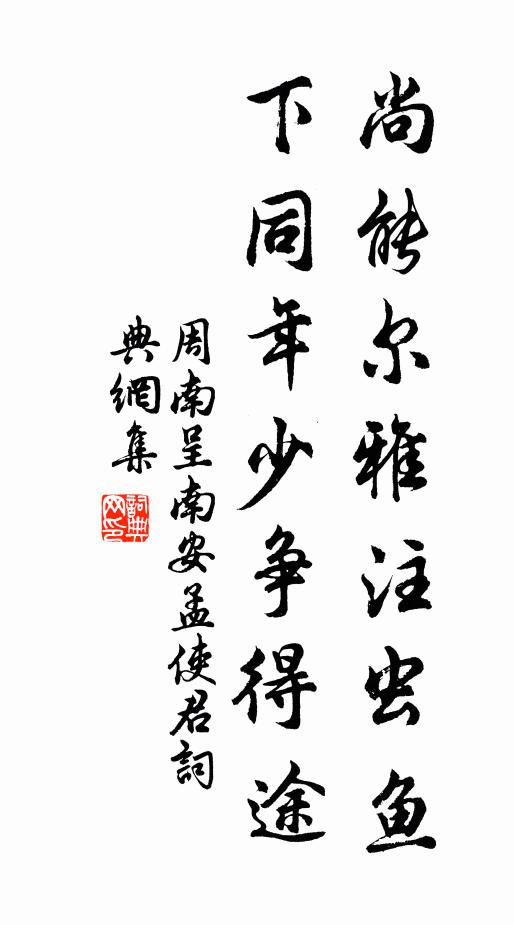 尚能尔雅注虫鱼
下同年少争得途
周南呈南安孟使君詞
典網集
詞典網印